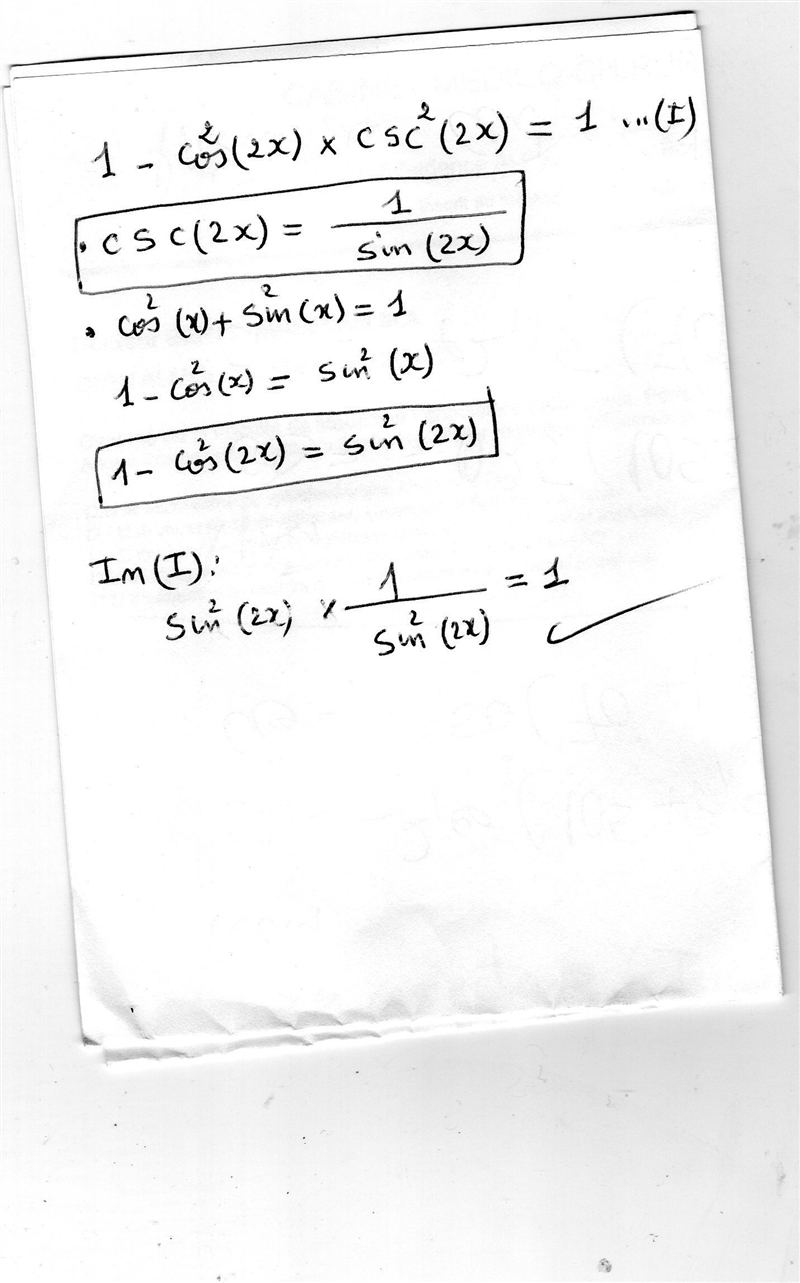 1 - cos²(2x) × csc²(2x) = 1 ...(I)
• csc(2x) = 1 / sin(2x)
• cos²(x) + sin²(x) = 1
1 - cos²(x) = sin²(x)
1 - cos²(2x) = sin²(2x)
Im(I):
sin²(2x) × 1 / sin²(2x) = 1 ✓